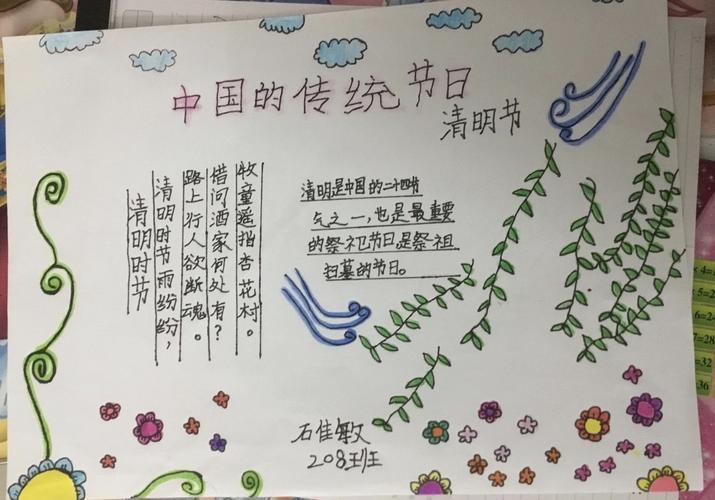 中国的传统节日
清明节
清明时节
清明时节雨纷纷，
路上行人欲断魂。
借问酒家何处有？
牧童遥指杏花村。
清明是中国的二十四节
气之一，也是最重要
的祭祀节日是祭祖
扫墓的节日。
石佳敏
208班